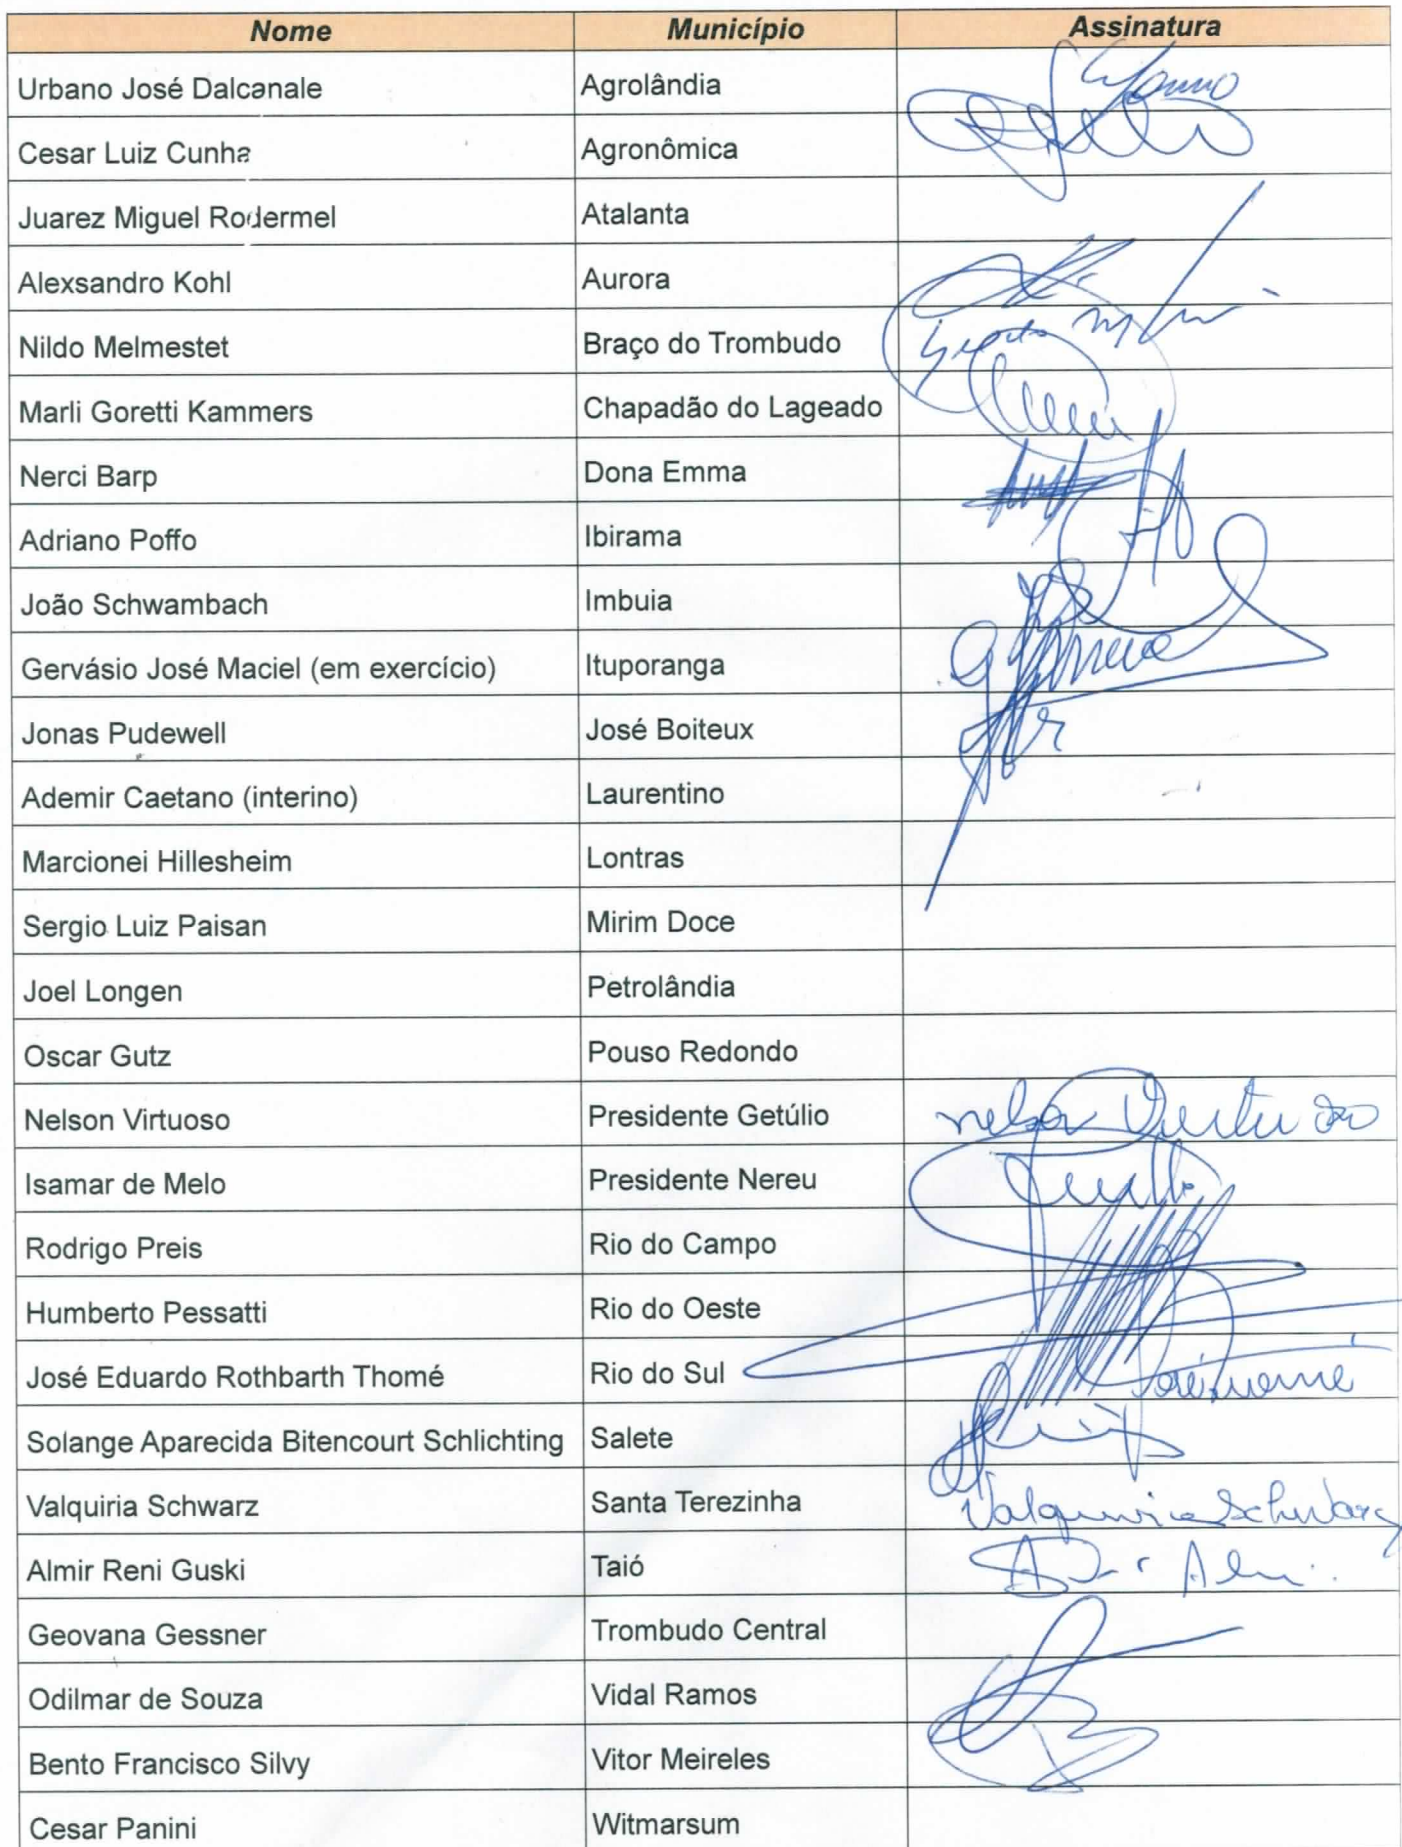 Nome Município Assinatura
Urbano José Dalcanale Agrolândia
Cesar Luiz Cunha Agronômica
Juarez Miguel Rodermel Atalanta
Alexsandro Kohl Aurora
Nildo Melmestet Braço do Trombudo
Marli Goretti Kammers Chapadão do Lageado
Nerci Barp Dona Emma
Adriano Poffo Ibirama
João Schwambach Imbuia
Gervásio José Maciel (em exercício) Ituporanga
Jonas Pudewell José Boiteux
Ademir Caetano (interino) Laurentino
Marcionei Hillesheim Lontras
Sergio Luiz Paisan Mirim Doce
Joel Longen Petrolândia
Oscar Gutz Pouso Redondo
Nelson Virtuoso Presidente Getúlio nelson Virtuoso
Isamar de Melo Presidente Nereu
Rodrigo Preis Rio do Campo
Humberto Pessatti Rio do Oeste
José Eduardo Rothbarth Thomé Rio do Sul
Solange Aparecida Bitencourt Schlichting Salete
Valquiria Schwarz Santa Terezinha Valquiria Schwarz
Almir Reni Guski Taió
Geovana Gessner Trombudo Central
Odilmar de Souza Vidal Ramos
Bento Francisco Silvy Vitor Meireles
Cesar Panini Witmarsum